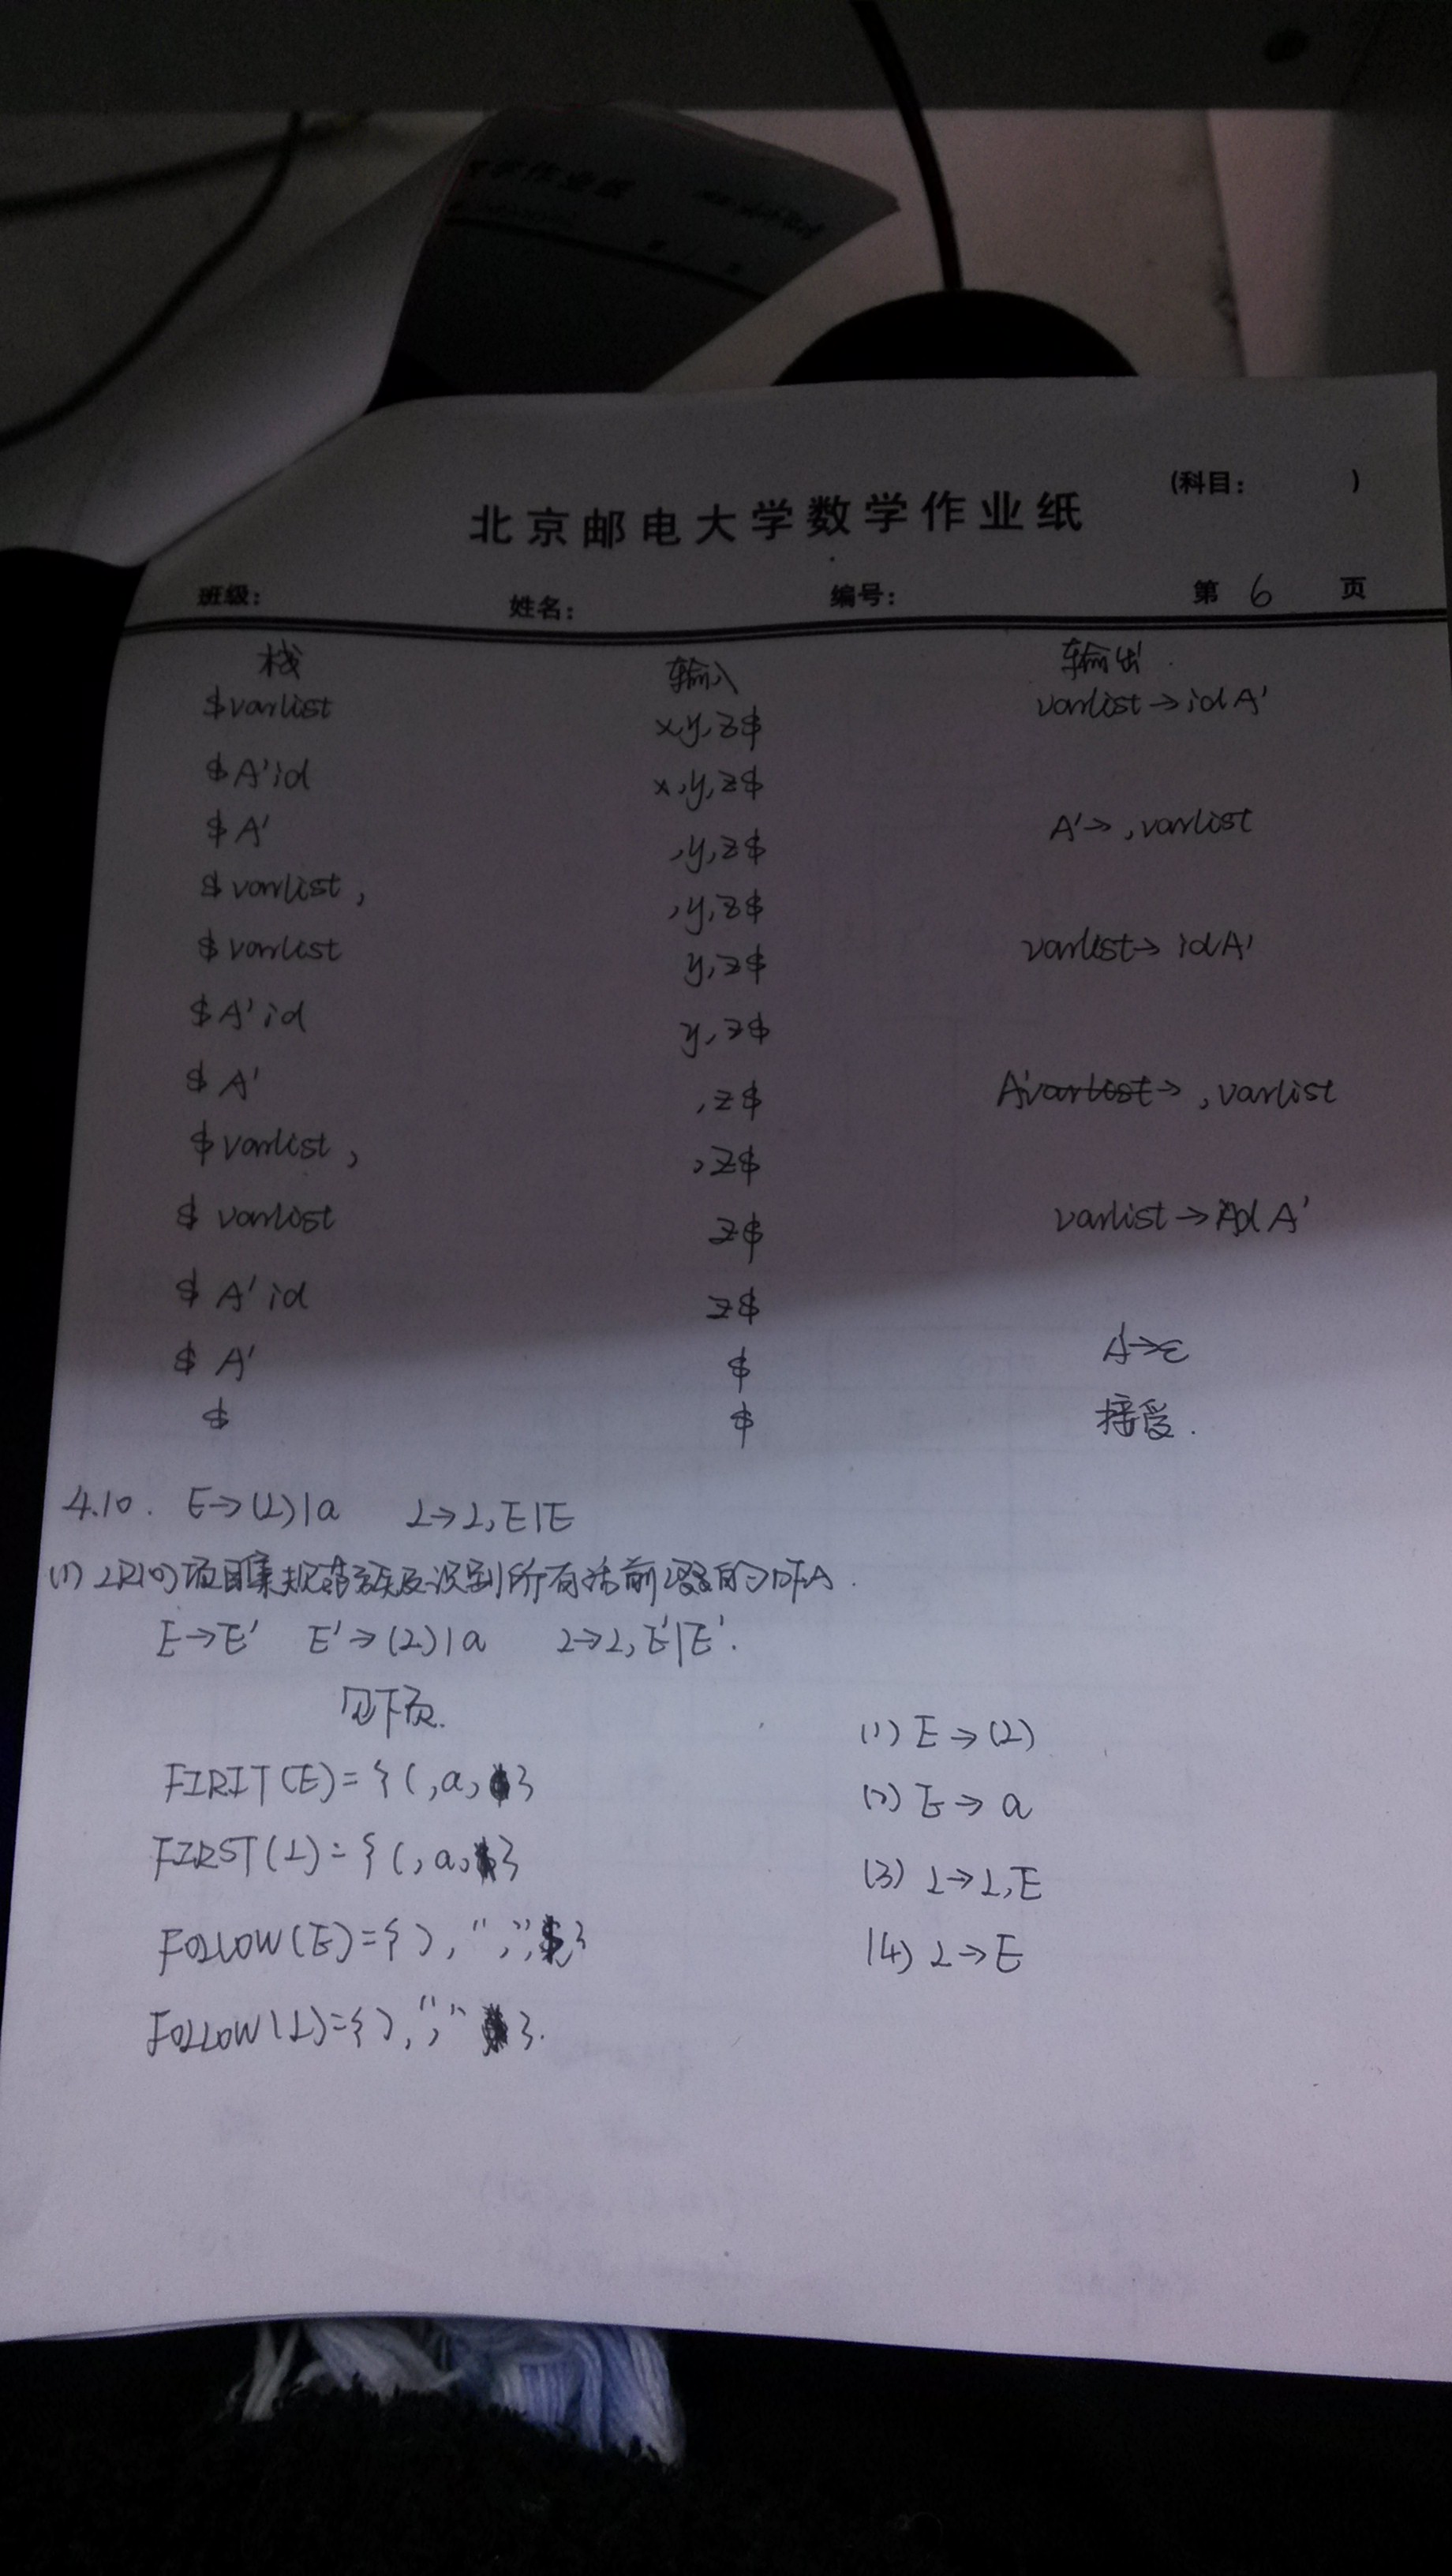 (科目: )
北京邮电大学数学作业纸
班级: 姓名: 编号: 第 6 页
栈 输入 输出
$varlist x,y,z$ varlist→idA'
$A'id x,y,z$
$A' ,y,z$ A'→,varlist
$varlist, ,y,z$
$varlist y,z$ varlist→idA'
$A'id y,z$
$A' ,z$ A'→,varlist
$varlist, ,z$
$varlist z$ varlist→idA'
$A'id z$
$A' $ A'→ε
$ $ 接受.
4.10. E→(L)|a L→L,E|E
(1) LR(0)项目集规范族及识别所有活前缀的DFA.
E→E' E'→(L)|a L→L,E'|E'.
见下页.
(1) E→(L)
FIRIT(E)={(,a,}
(2) E→a
FIRST(L)={(,a,}
(3) L→L,E
FOLLOW(E)={),",",$}
(4) L→E
FOLLOW(L)={),","}.